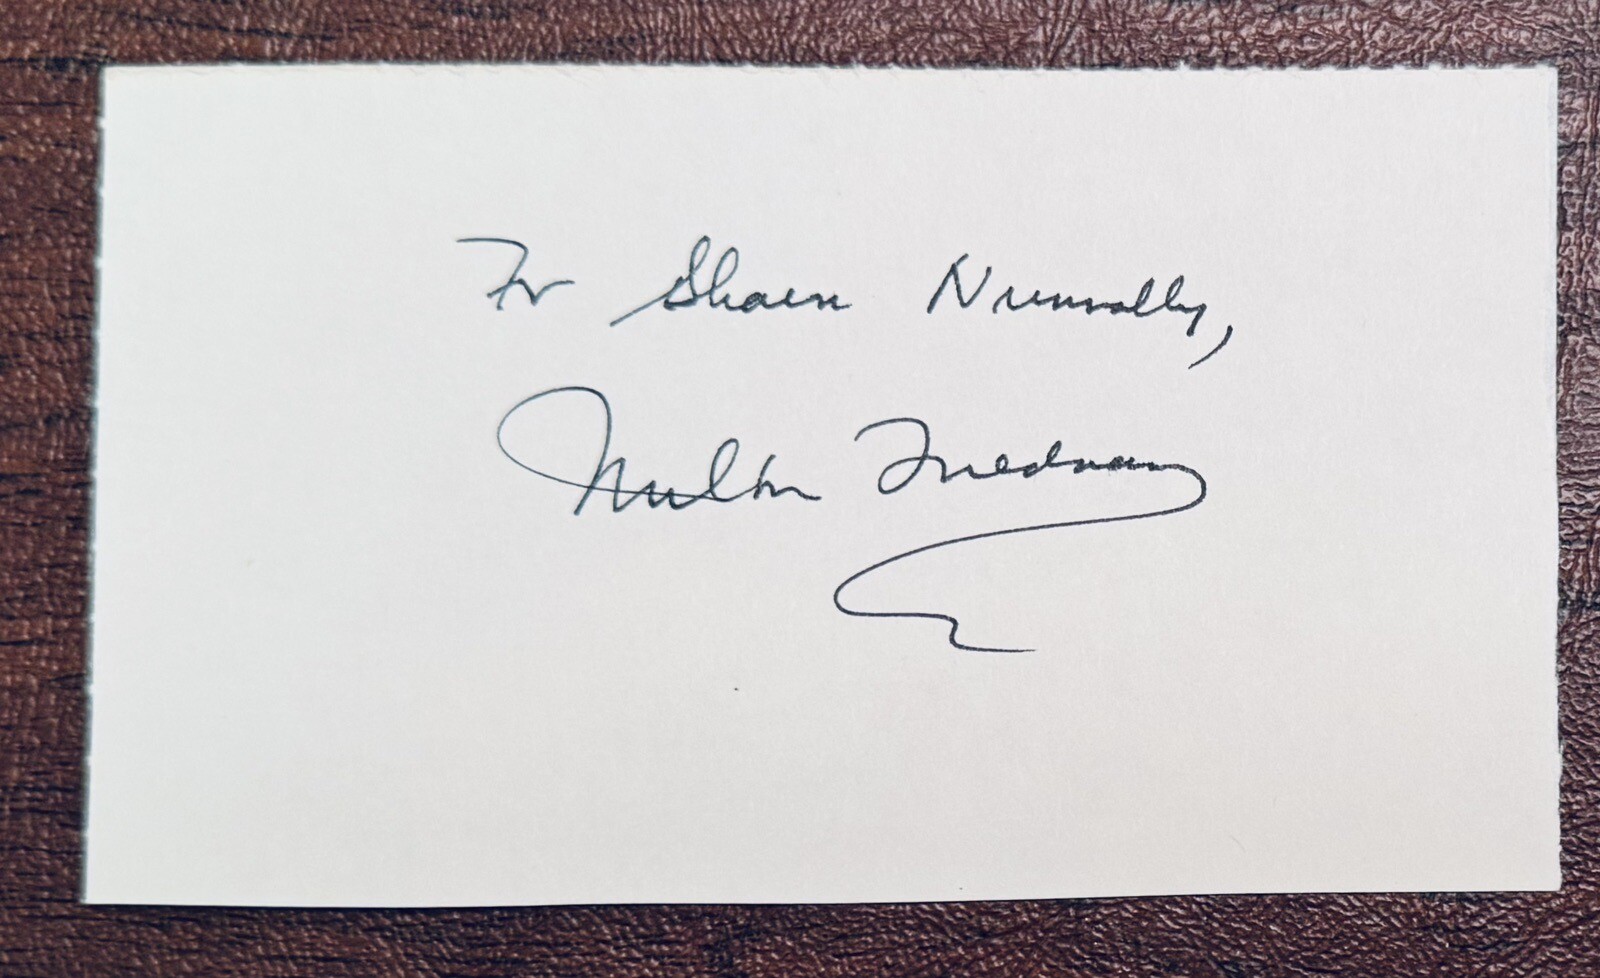 For Shawn Nunnally,
Milton Friedman